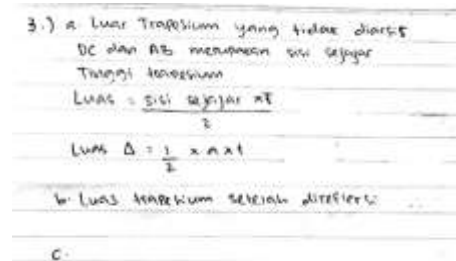 3.) a Luas Trapesium yang tidak diarsir
DC dan AB merupakan sisi sejajar
Tinggi trapesium
Luas = sisi sejajar x t
2
Luas Δ = 1 x a x t
2
b. Luas trapesium setelah direfleksi
c.